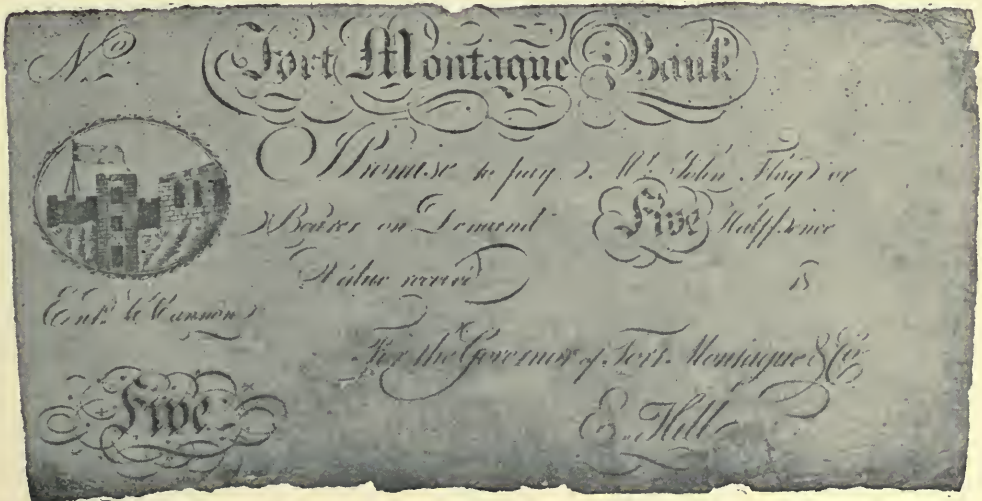 No
Fort Montague Bank
I Promise to pay Mr. John Flag or
Bearer on Demand Five Halfpence
Value receivd 18
Entd. W Cannon
For the Governor of Fort Montague & Co.
Five
E. Hill